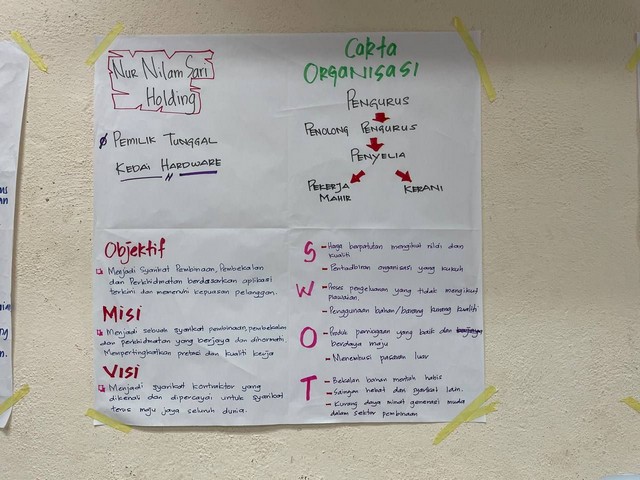 Nur Nilam Sari
Holding
Pemilik Tunggal
Kedai Hardware
Carta
Organisasi
Pengurus
Penolong Pengurus
Penyelia
Pekerja
Mahir
Kerani
Objektif
Menjadi Syarikat Pembinaan, Pembekalan
dan Perkhidmatan berdasarkan aplikasi
terkini dan memenuhi kepuasan pelanggan.
Misi
Menjadi sebuah syarikat pembinaan, pembekalan
dan perkhidmatan yang berjaya dan dihormati.
Mempertingkatkan prestasi dan kualiti kerja
Visi
Menjadi syarikat kontraktor yang
dikenali dan dipercayai untuk syarikat
terus maju jaya seluruh dunia.
S
- Harga berpatutan mengikut nilai dan
kualiti
- Pentadbiran organisasi yang kukuh
W
- Proses pengeluaran yang tidak mengikut
piawaian.
- Penggunaan bahan/barang kurang kualiti
O
- Produk perniagaan yang baik dan
berdaya maju
- Menembusi pasaran luar
T
- Bekalan bahan mentah habis
- Saingan hebat dari syarikat lain.
- Kurang daya minat generasi muda
dalam sektor pembinaan